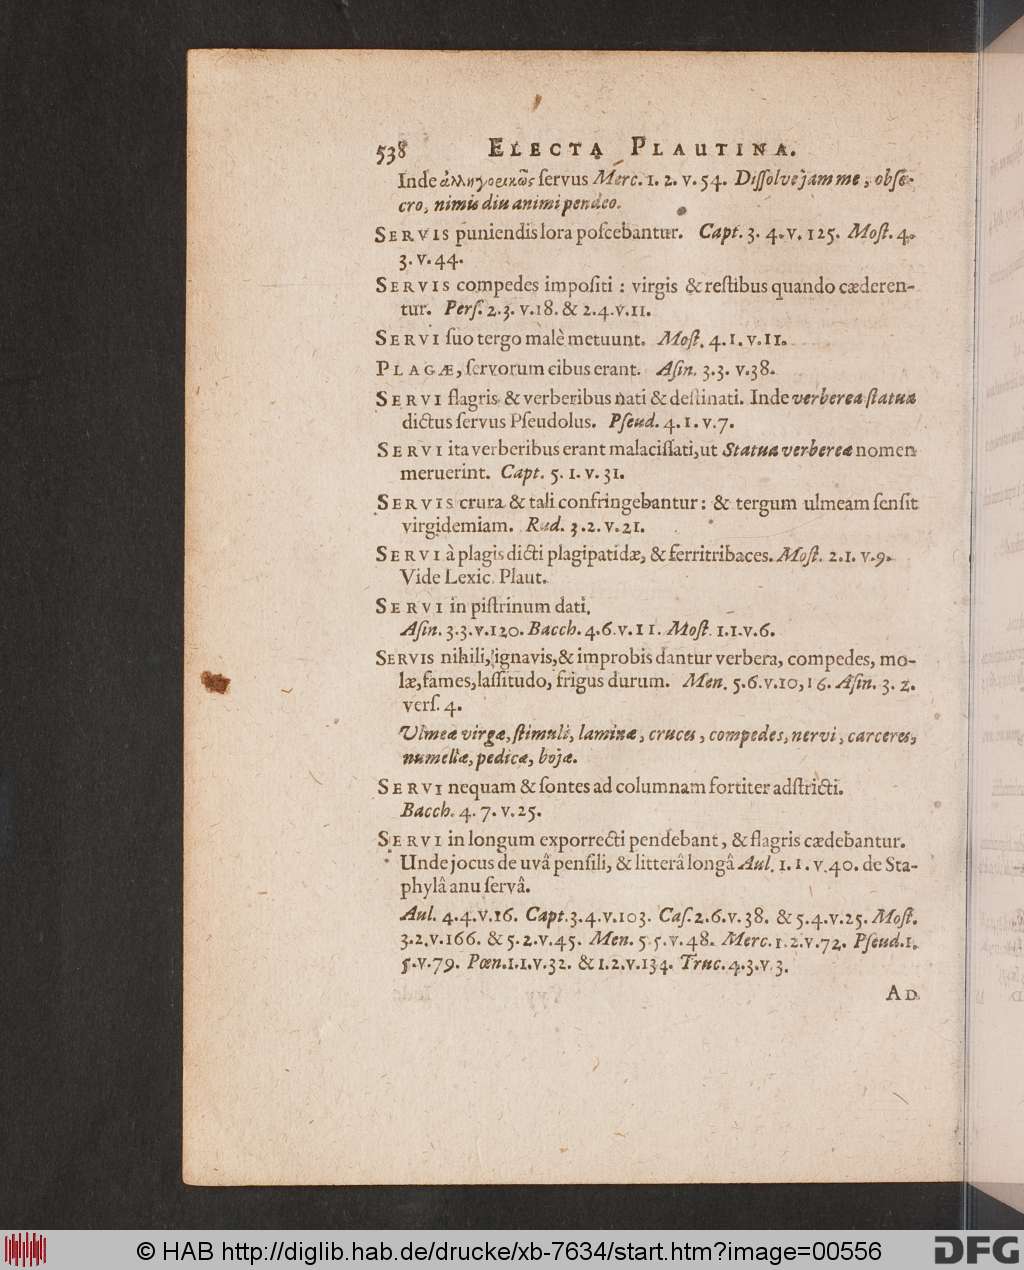 538 ELECTA PLAUTINA.
Inde ἀλληγορικῶς ſervus Merc. 1. 2. v. 54. Diſſolve jam me, obſe-
cro, nimis diu animi pendeo.
SERVIS puniendis lora poſcebantur. Capt. 3. 4. v. 125. Moſt. 4.
3. v. 44.
SERVIS compedes impoſiti : virgis & reſtibus quando cæderen-
tur. Perſ. 2. 3. v. 18. & 2. 4. v. 11.
SERVI ſuo tergo malè metuunt. Moſt. 4. 1. v. 11.
PLAGÆ, ſervorum cibus erant. Aſin. 3. 3. v. 38.
SERVI flagris & verberibus nati & deſtinati. Inde verberea ſtatua
dictus ſervus Pſeudolus. Pſeud. 4. 1. v. 7.
SERVI ita verberibus erant malaciſſati, ut Statuæ verbereæ nomen
meruerint. Capt. 5. 1. v. 31.
SERVIS crura & tali confringebantur : & tergum ulmeam ſenſit
virgidemiam. Rud. 3. 2. v. 21.
SERVI à plagis dicti plagipatidæ, & ferritribaces. Moſt. 2. 1. v. 9.
Vide Lexic. Plaut.
SERVI in piſtrinum dati.
Aſin. 3. 3. v. 120. Bacch. 4. 6. v. 11. Moſt. 1. 1. v. 6.
SERVIS nihili, ignavis, & improbis dantur verbera, compedes, mo-
læ, fames, laſſitudo, frigus durum. Men. 5. 6. v. 10, 16. Aſin. 3. 2.
verſ. 4.
Ulmeæ virgæ, ſtimuli, laminæ, cruces, compedes, nervi, carceres,
numellæ, pedicæ, bojæ.
SERVI nequam & ſontes ad columnam fortiter adſtricti.
Bacch. 4. 7. v. 25.
SERVI in longum exporrecti pendebant, & flagris cædebantur.
Unde jocus de uvâ penſili, & litterâ longâ Aul. 1. 1. v. 40. de Sta-
phylâ anu ſervâ.
Aul. 4. 4. v. 16. Capt. 3. 4. v. 103. Caſ. 2. 6. v. 38. & 5. 4. v. 25. Moſt.
3. 2. v. 166. & 5. 2. v. 45. Men. 5. 5. v. 48. Merc. 1. 2. v. 72. Pſeud. 1.
5. v. 79. Pœn. 1. 1. v. 32. & 1. 2. v. 134. Truc. 4. 3. v. 3.
AD
© HAB http://diglib.hab.de/drucke/xb-7634/start.htm?image=00556
DFG